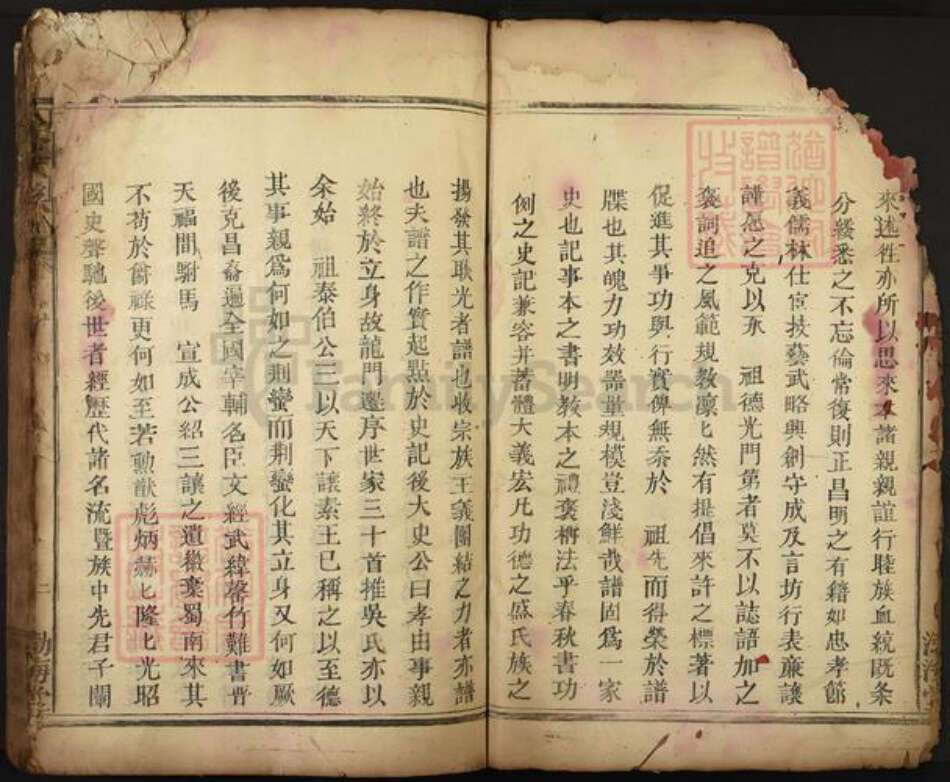 來述牲亦所以思來本諸親親誼行睦族血統既条
分縷悉之不忘倫常復則正昌明之有籍如忠孝節
義儒林仕宦技藝武略興創守成及言坊行表廉讓
謹愿之克以永　祖德光門第者莫不以誌語加之
褒詞追之風範規教凜匕然有提倡來許之標著以
促進其爭功與行實俾無忝於　祖先而得榮於譜
牒也其魄力功效器量規模豈淺鮮哉譜固爲一家
史也記事本之書明教本之禮褒櫛法乎春秋書功
例之史記兼容并蓄體大義宏凡功德之盛氏族之
揚發其耿光者譜也收宗族王義團結之力者亦譜
也夫譜之作實起點於史記後大史公曰孝由事親
始終於立身故龍門選序世家三十首推吳氏亦以
余始　祖泰伯公三以天下讓素王已稱之以至德
其事親爲何如之荆蠻而荆蠻化其立身又何如厥
後克昌裔遍全國宰輔名臣文經武緯罄竹難書晋
天福間駙馬　宣成公紹三讓之遺徽棄蜀南來其
不苟於爵祿更何如至若勳猷彪炳赫匕隆匕光昭
國史聲馳後世者經歷代諸名流暨族中先君子闡
二
渤海堂
FamilySearch